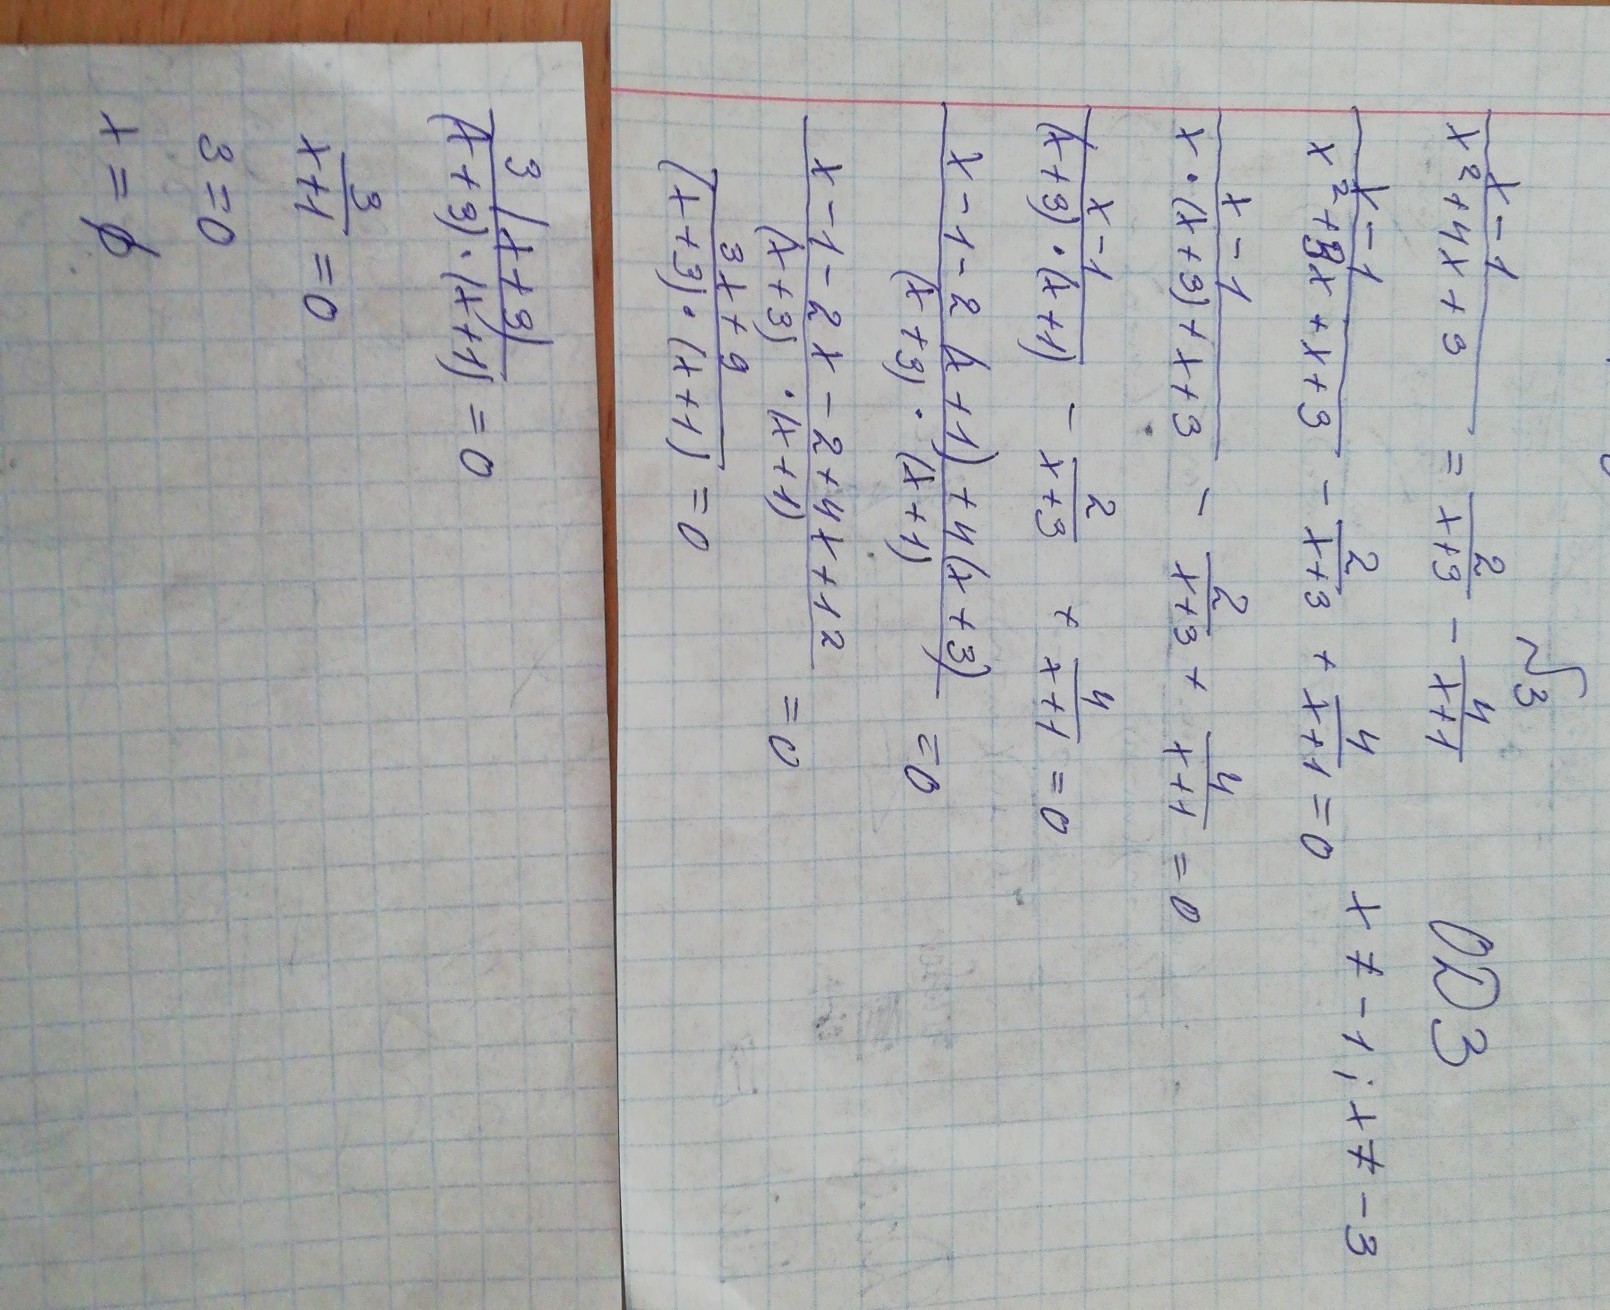 √3
x-1/x²+4x+3 = 2/x+3 - 4/x+1 ОДЗ
x-1/x²+3x+x+3 - 2/x+3 + 4/x+1 = 0 x ≠ -1; x ≠ -3
x-1/x·(x+3)+x+3 - 2/x+3 + 4/x+1 = 0
x-1/(x+3)·(x+1) - 2/x+3 + 4/x+1 = 0
x-1-2(x+1)+4(x+3)/(x+3)·(x+1) = 0
x-1-2x-2+4x+12/(x+3)·(x+1) = 0
3x+9/(x+3)·(x+1) = 0
3(x+3)/(x+3)·(x+1) = 0
3/x+1 = 0
3=0
x=∅